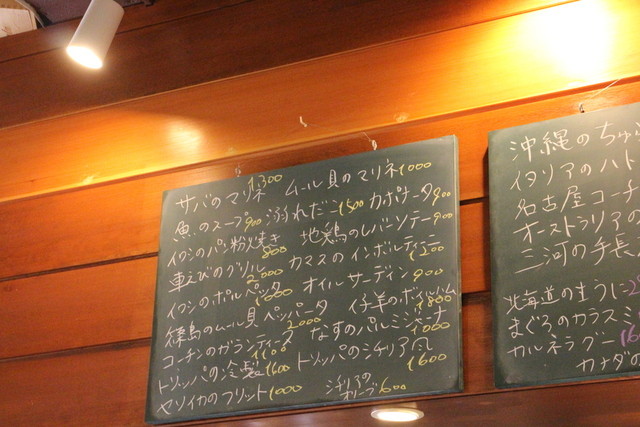 サバのマリネ 1300 ムール貝のマリネ 1000
魚のスープ 900 溺れだこ 1500 カポナータ 900
イワシのパン粉焼き 800 地鶏のレバーソテー 900
車えびのグリル 2000 カマスのインボルティーニ 1200
イワシのポルペッタ 1000 オイルサーディン 900
篠島のムール貝ペッパータ 2000 仔羊のボイルハム 1800
コーチンのガランティーヌ 1100 なすのパルミジャーナ 1000
トリッパの冷製 1100 トリッパのシチリア風 1600
ヤリイカのフリット 1000 シチリアのオリーブ 600
沖縄のちゅ
イタリアのハト
名古屋コーチ
オーストラリアの
三河の手長
北海道の生うに
まぐろのカラスミ
カルネラグー
カナダの